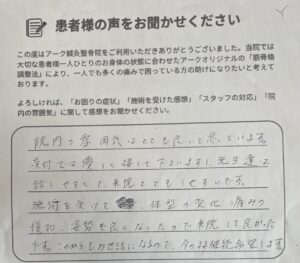 患者様の声をお聞かせください
この度はアーク鍼灸整骨院をご利用いただきありがとうございました。当院では
大切な患者様一人ひとりのお身体の状態に合わせたアークオリジナルの「筋骨格
調整法」により、一人でも多くの痛みで困っている方の助けになりたいと考えて
おります。
よろしければ、「お困りの症状」「施術を受けた感想」「スタッフの対応」「院
内の雰囲気」に関して感想をお聞かせください。
院内の雰囲気はとても良いと思っています。
受付では優しく接して下さいますし、先生達は
話しやすくて、来院とてもしやすいです。
施術を受けて、体型の変化、痛みの
緩和、姿勢も良くなったので来院して良かった
です。これからもお世話になるので、今のまま継続希望します。